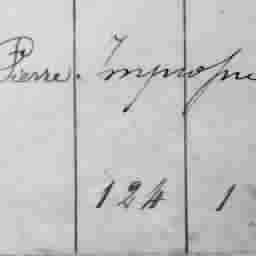 Pierre. Impropre
124 1